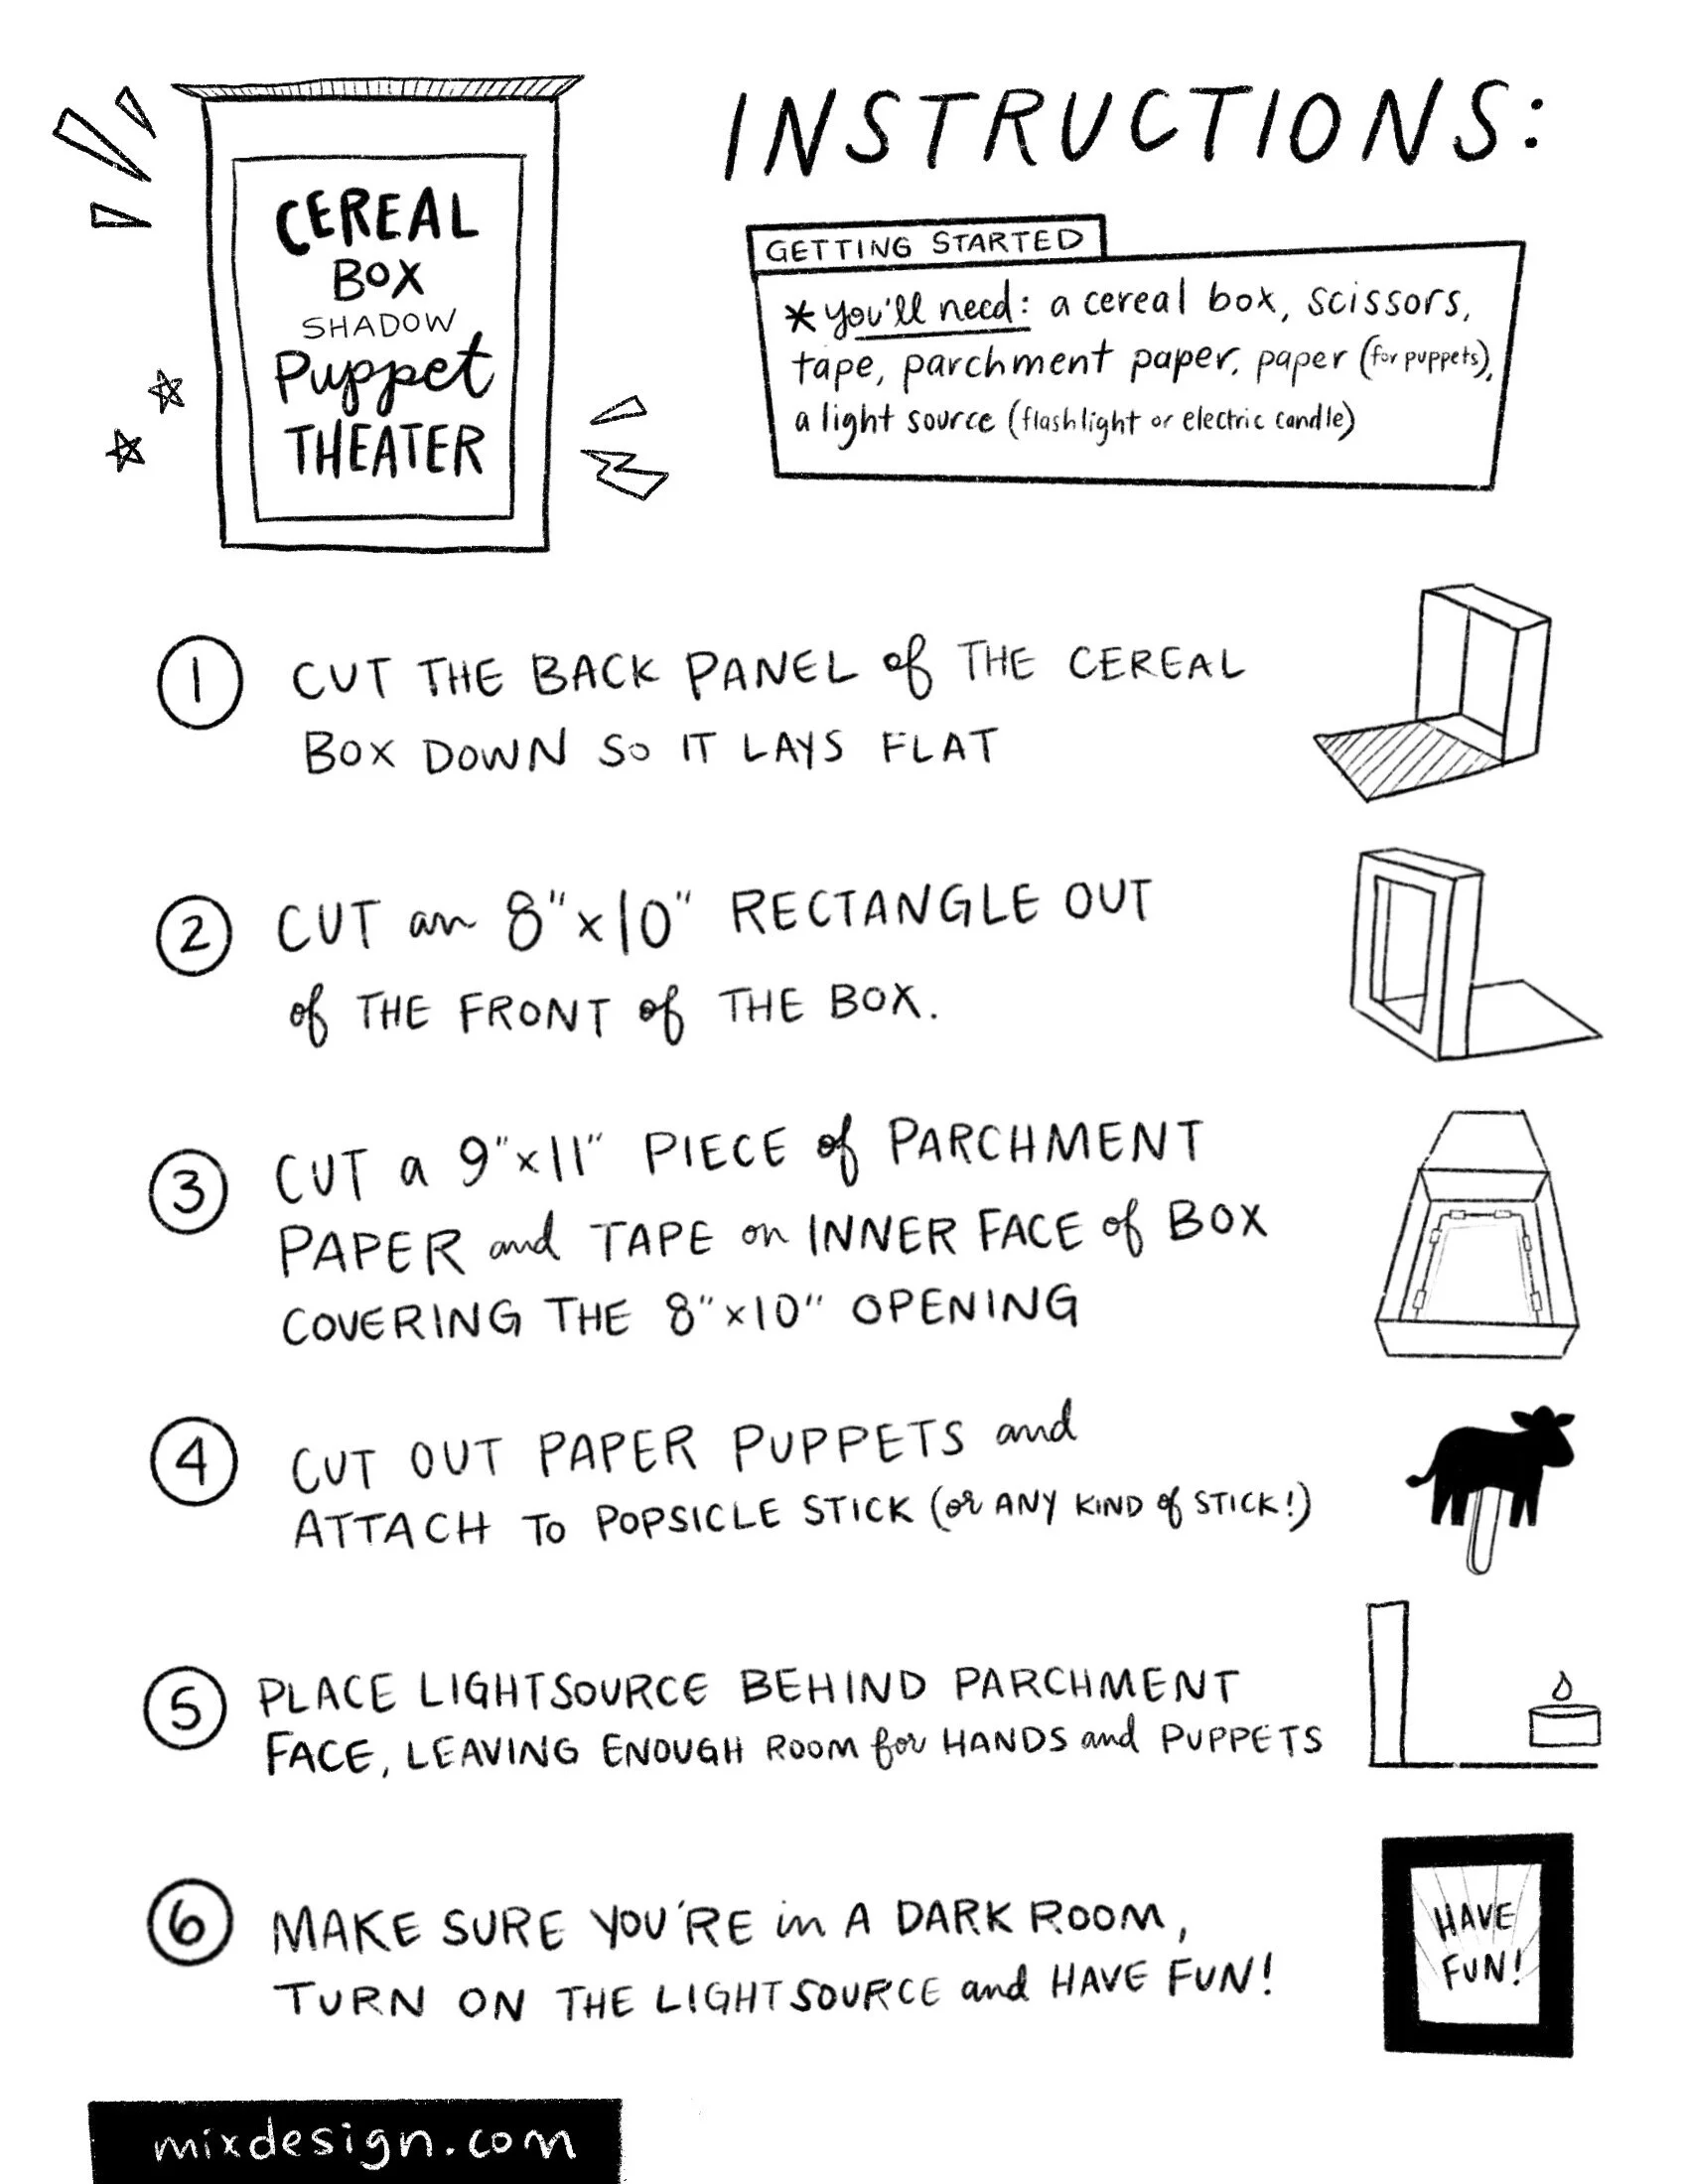 CEREAL
BOX
SHADOW
Puppet
THEATER
INSTRUCTIONS:
GETTING STARTED
* you'll need: a cereal box, scissors,
tape, parchment paper, paper (for puppets),
a light source (flashlight or electric candle)
1 CUT THE BACK PANEL of THE CEREAL
BOX DOWN SO IT LAYS FLAT
2 CUT an 8"x10" RECTANGLE OUT
of THE FRONT of THE BOX.
3 CUT a 9"x11" PIECE of PARCHMENT
PAPER and TAPE on INNER FACE of BOX
COVERING THE 8"x10" OPENING
4 CUT OUT PAPER PUPPETS and
ATTACH TO POPSICLE STICK (or ANY KIND of STICK!)
5 PLACE LIGHTSOURCE BEHIND PARCHMENT
FACE, LEAVING ENOUGH ROOM for HANDS and PUPPETS
6 MAKE SURE YOU'RE in A DARK ROOM,
TURN ON THE LIGHTSOURCE and HAVE FUN!
HAVE
FUN!
mixdesign.com